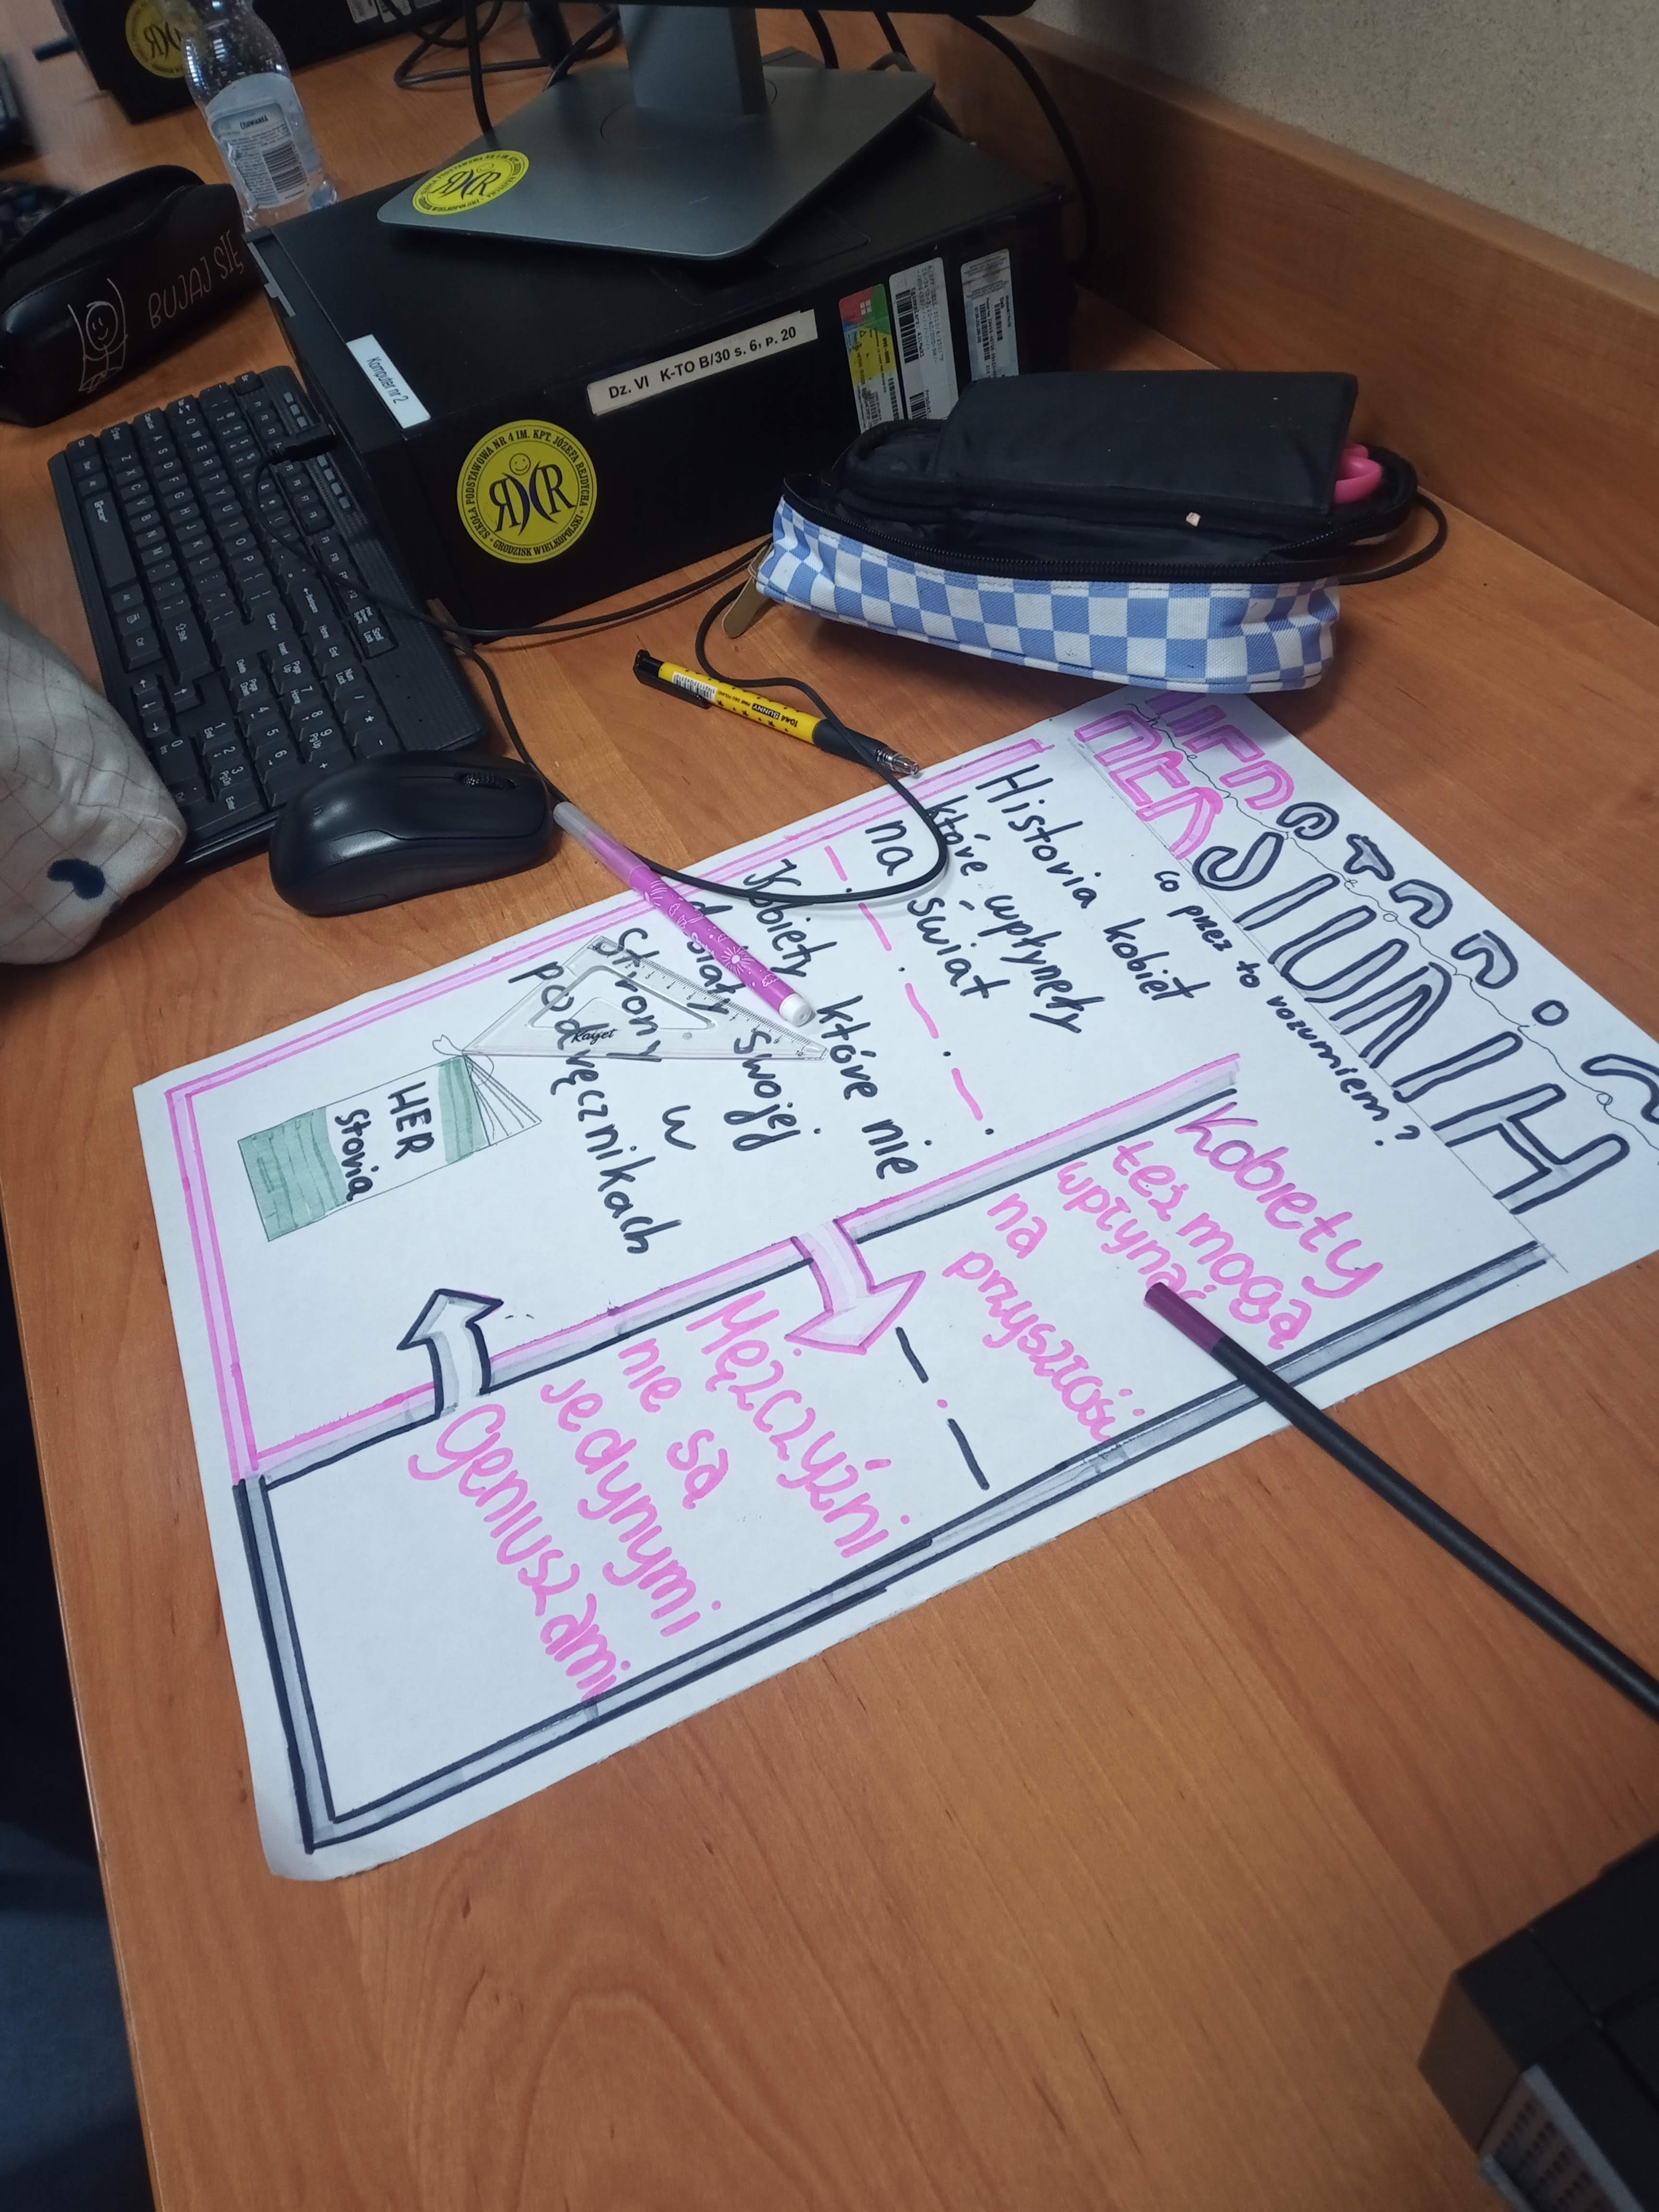 HERSTORIA
HERSTORIA
co przez to rozumiem?
Historia kobiet
które wpłynęły
na świat
Kobiety które nie
swojej
strony w
podręcznikach
HER
storia
Kobiety
też mogą
wpłynąć
na
przyszłość
Mężczyźni
nie są
jedynymi
Geniuszami
Kayet
BUJAJ SIĘ
Komputer nr 2
Dz. VI K-TO B/30 s. 6, p. 20
SZKOŁA PODSTAWOWA NR 4 IM. KPT. JÓZEFA REJDYCHA
GRODZISK WIELKOPOLSKI
TOMA
SUNNY